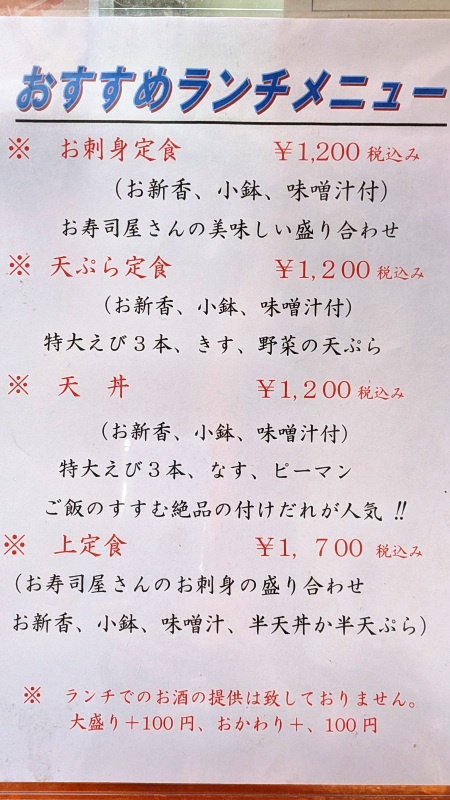 おすすめランチメニュー
※ お刺身定食 ￥1,200 税込み
（お新香、小鉢、味噌汁付）
お寿司屋さんの美味しい盛り合わせ
※ 天ぷら定食 ￥1,200 税込み
（お新香、小鉢、味噌汁付）
特大えび３本、きす、野菜の天ぷら
※ 天 丼 ￥1,200 税込み
（お新香、小鉢、味噌汁付）
特大えび３本、なす、ピーマン
ご飯のすすむ絶品の付けだれが人気 !!
※ 上定食 ￥1，700 税込み
（お寿司屋さんのお刺身の盛り合わせ
お新香、小鉢、味噌汁、半天丼か半天ぷら）
※ ランチでのお酒の提供は致しておりません。
大盛り＋100 円、おかわり＋、100 円